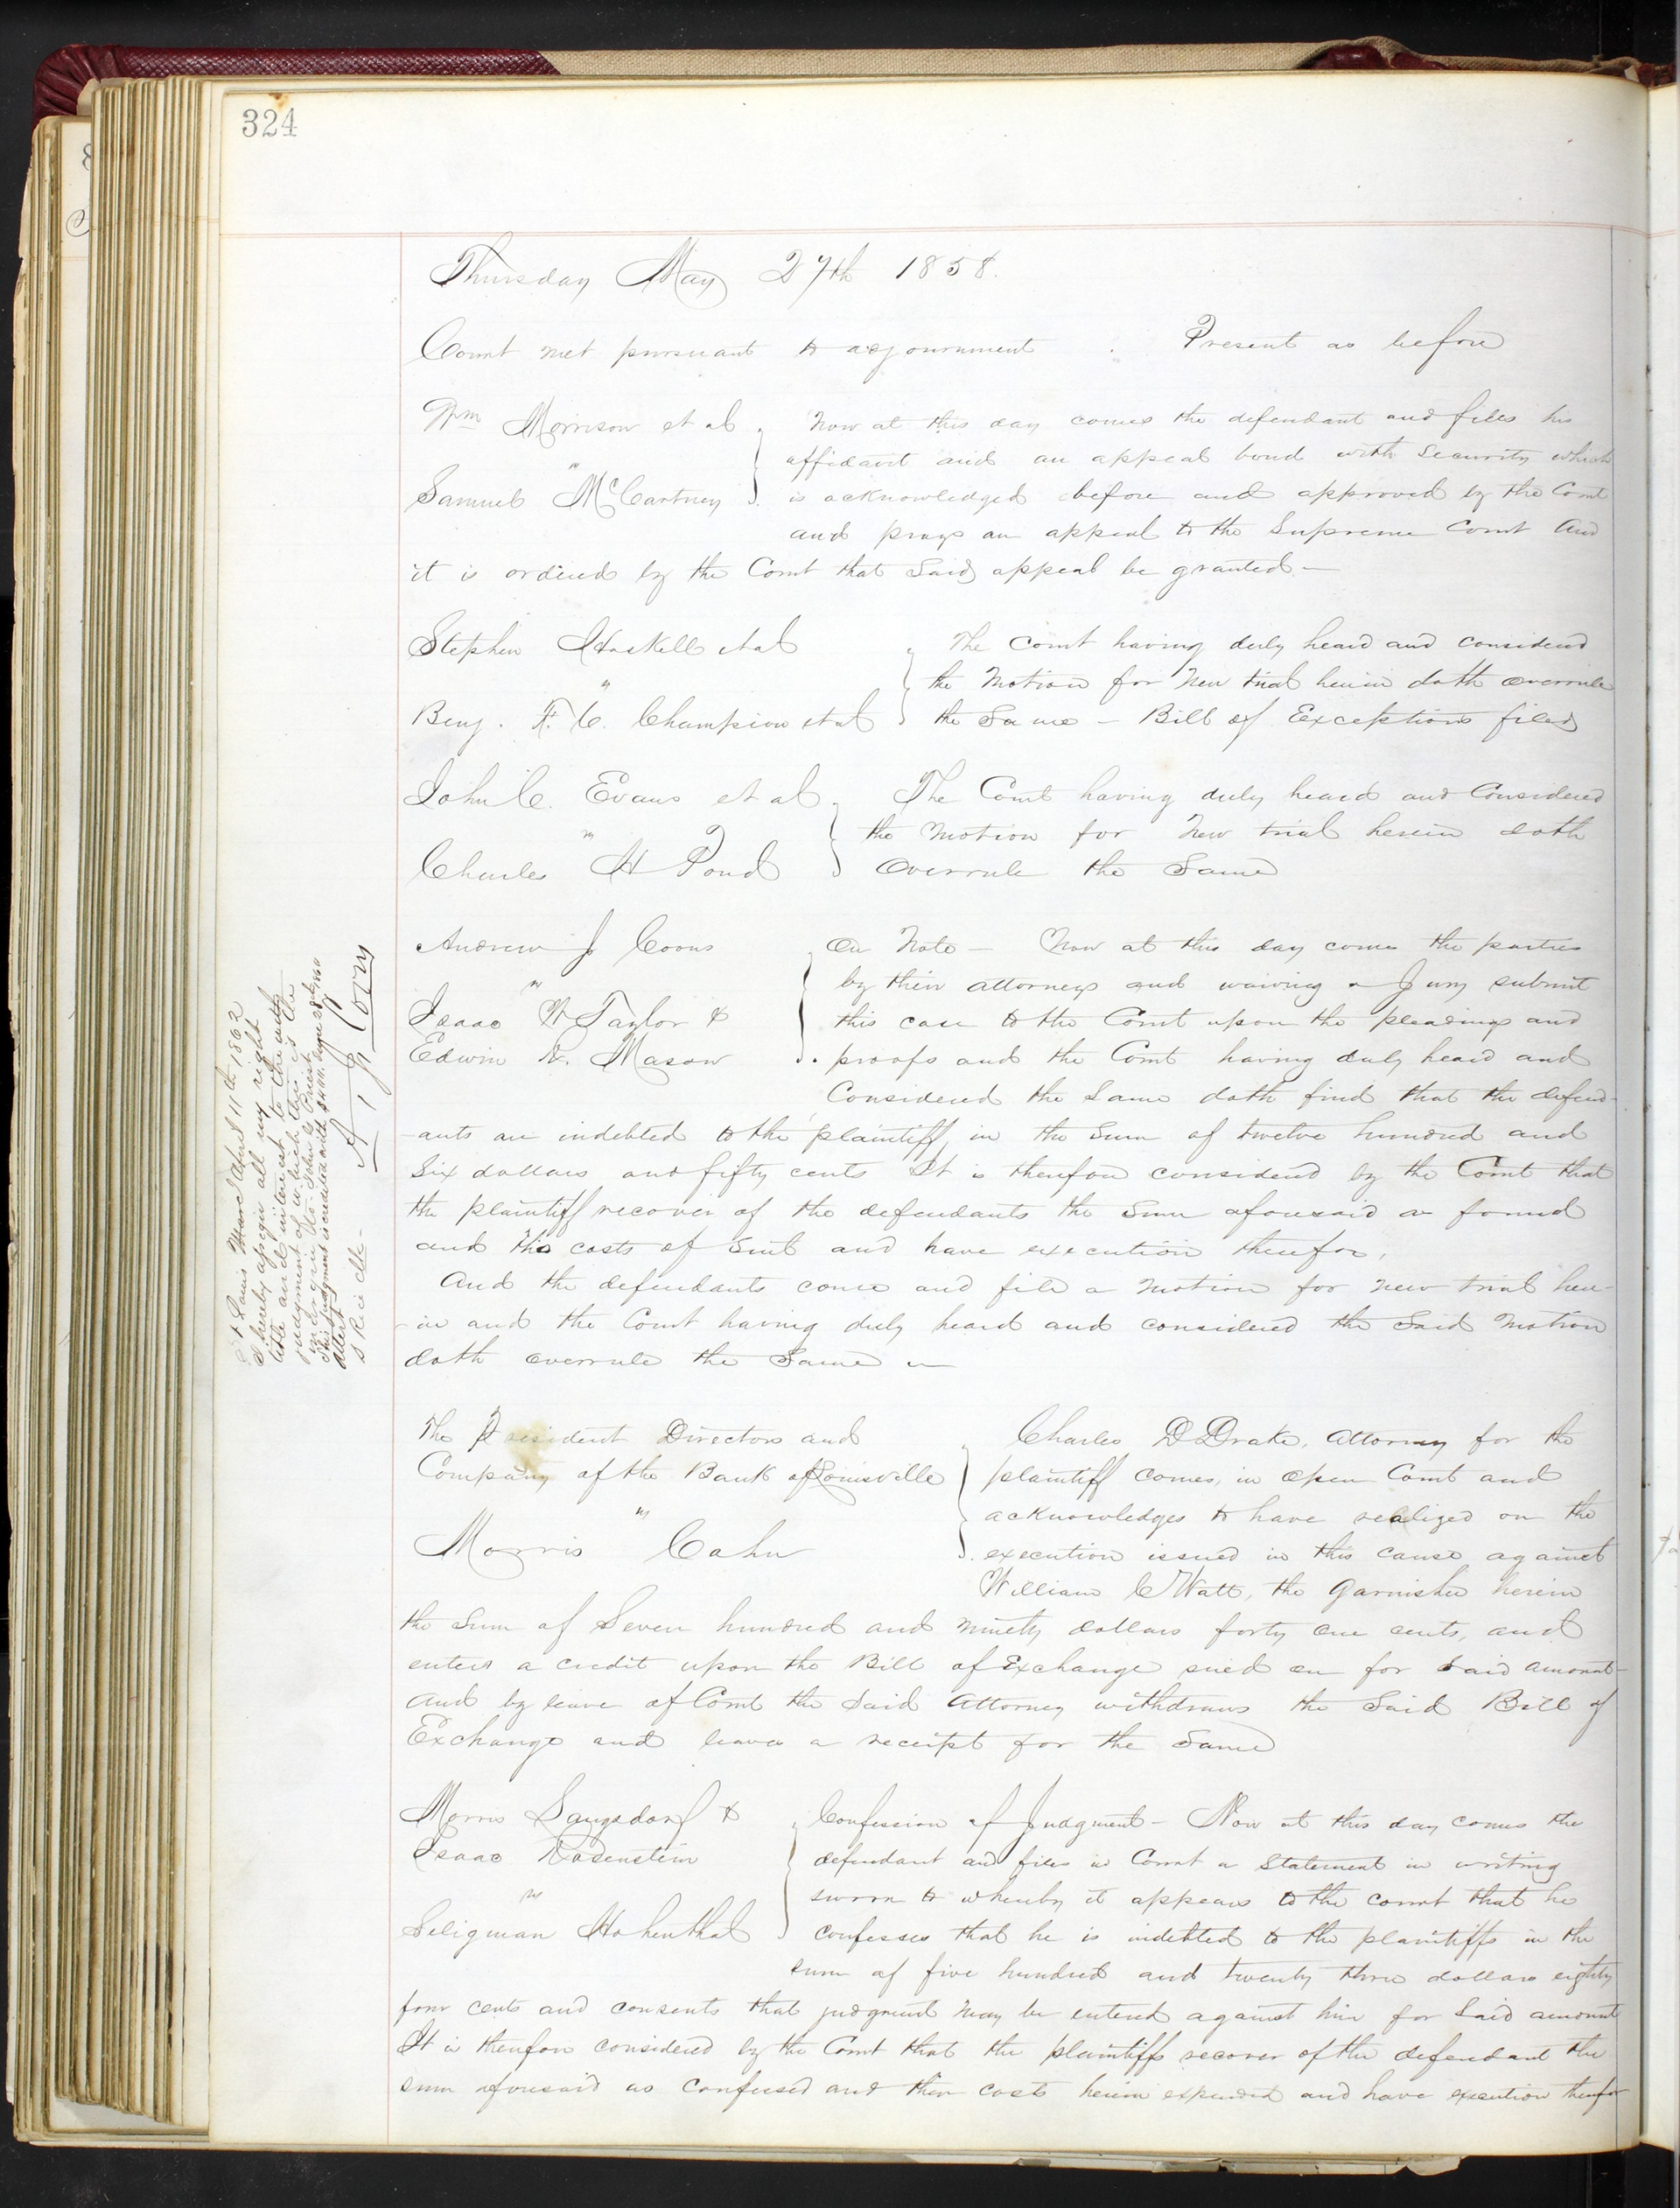 324
Thursday May 27th 1858.
Court met pursuant to adjournment . Present as before
Wm Morrison et al
vs
Samuel McCartney
Now at this day comes the defendant and files his
affidavit and an appeal bond with Security which
is acknowledged before and approved by the Court
and prays an appeal to the Supreme Court And
it is ordered by the Court that Said appeal be granted —
Stephen Haskell et al
vs
Benj. F. C. Champion et al
The Court having duly heard and considered
the Motion for New trial herein doth overrule
the Same — Bill of Exceptions filed
John C. Evans et al
vs
Charles H Pond
The Court having duly heard and Considered
the Motion for New trial herein doth
Overrule the Same
Andrew J Coons
vs
Isaac W Taylor &
Edwin R. Mason
On Note — Now at this day come the parties
by their attorneys and waiving a Jury submit
this case to the Court upon the pleadings and
proofs and the Court having duly heard and
Considered the Same doth find that the defend-
-ants are indebted to the plaintiff in the Sum of twelve hundred and
Six dollars and fifty cents It is therefore considered by the Court that
the plaintiff recover of the defendants the Sum aforesaid as found
and the costs of Suit and have execution therefor.
And the defendants come and file a Motion for new trial here-
-in and the Court having duly heard and considered the Said Motion
doth overrule the Same —
St Louis April 11th 1862
I hereby assign all my right
title and interest to the within
judgment of which this is the
to John G Priest
This judgment is credited with
Attest
S Rice Clk
A J Corry
The President Directors and
Company of the Bank of Louisville
vs
Morris Cahn
Charles D Drake, Attorney for the
plaintiff comes, in open Court and
acknowledges to have realized on the
execution issued in this cause against
William C Watt, the Garnishee herein
the Sum of Seven hundred and ninety dollars forty one cents, and
enters a credit upon the Bill of Exchange sued on for Said amount—
And by leave of Court the Said Attorney withdraws the Said Bill of
Exchange and leaves a receipt for the Same
Morris Langsdorf &
Isaac Rosenstein
vs
Seligman Hohenthal
Confession of Judgment — Now at this day comes the
defendant and files in Court a Statement in writing
sworn to whereby it appears to the court that he
confesses that he is indebted to the plaintiffs in the
sum of five hundred and twenty three dollars eighty
four cents and consents that judgment may be entered against him for Said amount
It is therefore considered by the Court that the plaintiffs recover of the defendant the
sum aforesaid as confessed and their costs herein expended and have execution therefor